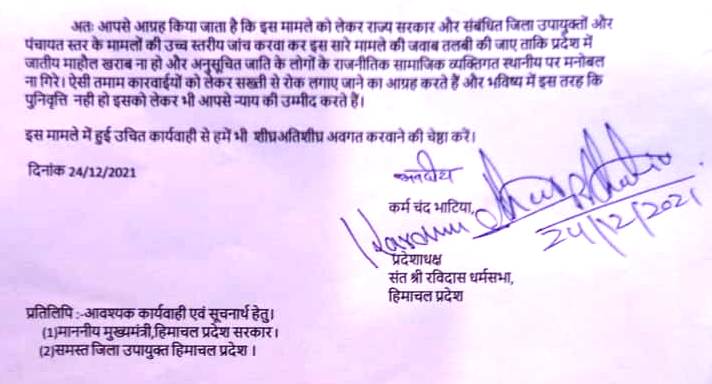 अतः आपसे आग्रह किया जाता है कि इस मामले को लेकर राज्य सरकार और संबंधित जिला उपायुक्तों और
पंचायत स्तर के मामलों की उच्च स्तरीय जांच करवा कर इस सारे मामले की जवाब तलबी की जाए ताकि प्रदेश में
जातीय माहौल खराब ना हो और अनुसूचित जाति के लोगों के राजनीतिक सामाजिक व्यक्तिगत स्थानीय पर मनोबल
ना गिरे। ऐसी तमाम कारवाईयों को लेकर सख्ती से रोक लगाए जाने का आग्रह करते हैं और भविष्य में इस तरह कि
पुनिवृत्ति नही हो इसको लेकर भी आपसे न्याय की उम्मीद करते हैं।
इस मामले में हुई उचित कार्यवाही से हमें भी शीघ्रअतिशीघ्र अवगत करवाने की चेष्ठा करें।
दिनांक 24/12/2021
भवदीय
कर्म चंद भाटिया,
Karam Chand Bhatia
24/12/2021
प्रदेशाधक्ष
संत श्री रविदास धर्मसभा,
हिमाचल प्रदेश
प्रतिलिपि :-आवश्यक कार्यवाही एवं सूचनार्थ हेतु।
(1)माननीय मुख्यमंत्री,हिमाचल प्रदेश सरकार।
(2)समस्त जिला उपायुक्त हिमाचल प्रदेश ।